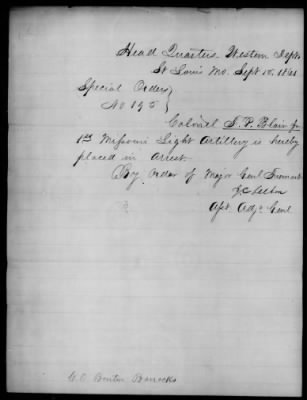 Head Quarters Western Dept.
St Louis Mo. Sept 15. 1861
Special Orders
No 195
Colonel F. P. Blair Jr
1st Missouri Light Artillery is hereby
placed in arrest.
By Order of Major Genl Fremont
J. C. Kelton
Asst. Adjt Genl
C. O. Benton Barracks